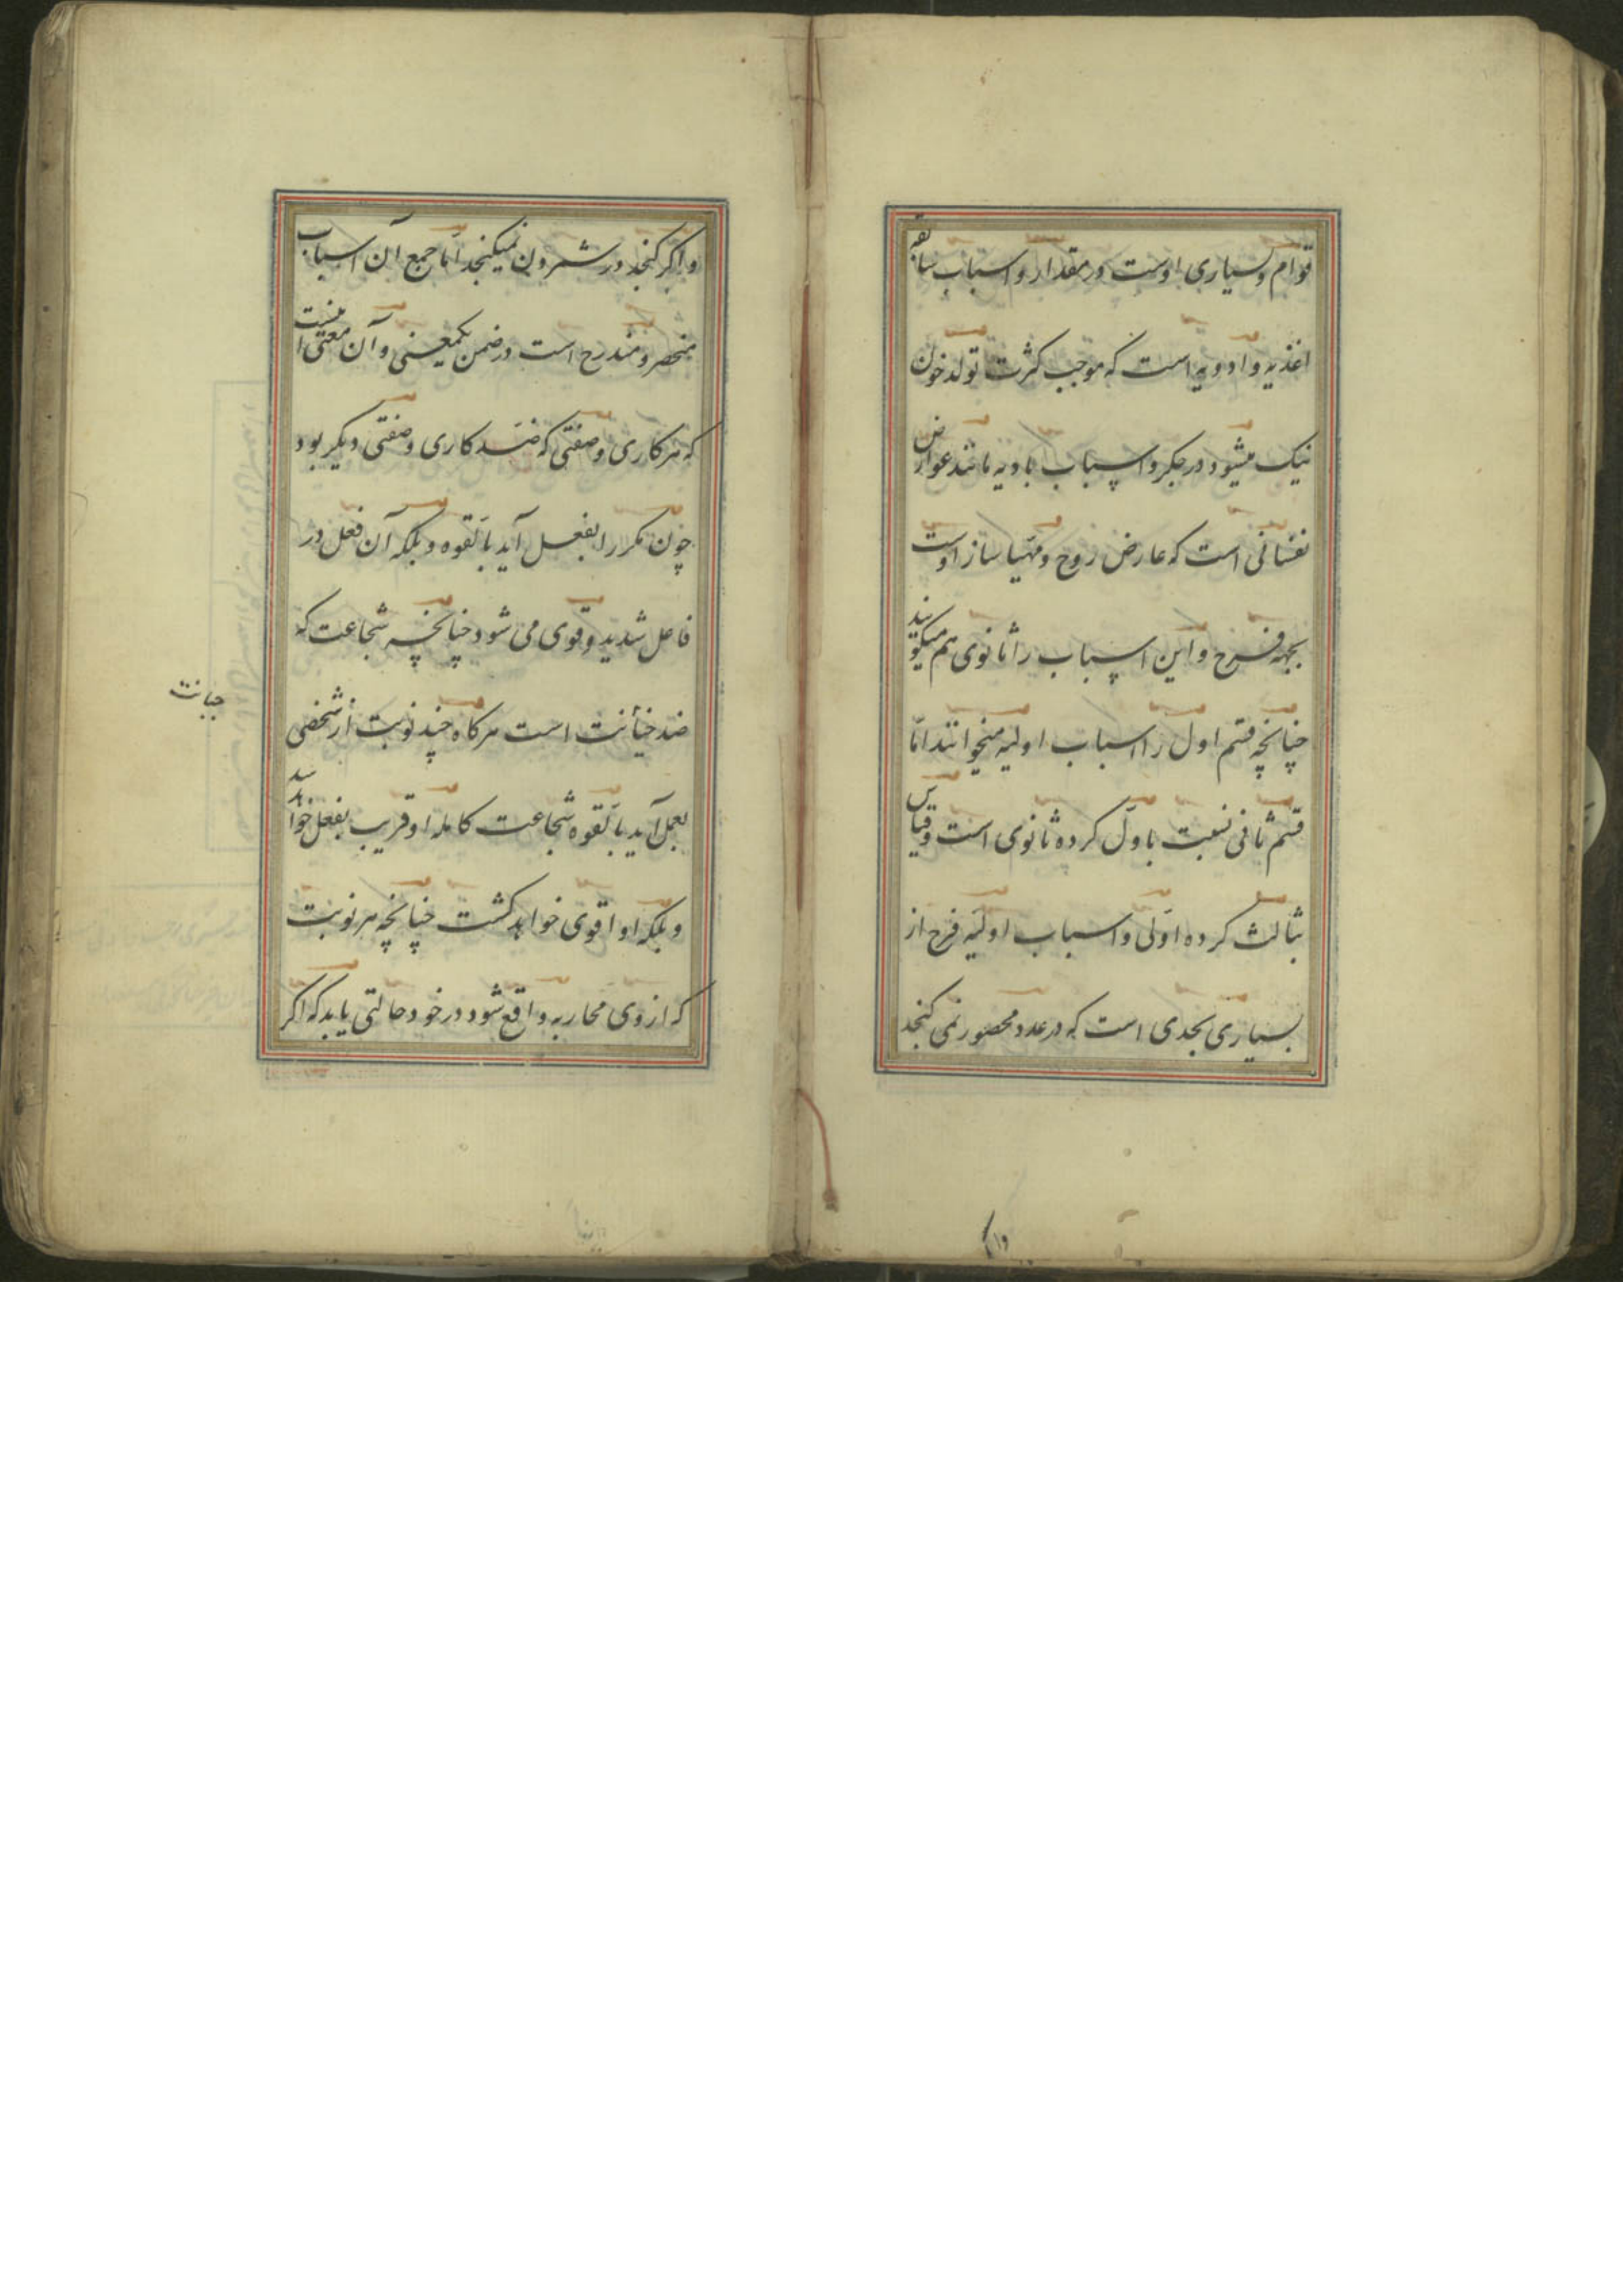 قوام و بسیاری اوست در مقدار و اسباب سابقه
اغذیه و ادویه است که موجب کثرت تولد خون
نیک میشود در جکر و اسباب بادیه مانند عوارض
نفسانی است که عارض روح و مهیا ساز اوست
بجهه فرح و این اسباب را ثانوی هم میکویند
چنانچه قسم اول را اسباب اولیه میخوانند امّا
قسم ثانی نسبت باوّل کرده ثانوی است وقیاس
بثالث کرده اوّلی و اسباب اولیه فرح از
بسیاری بحدی است که در عدد محصور نمی کنجد
و اکر کنجد در شمردن نمیکنجد امّا جمع آن اسباب
منحصر و مندرج است در ضمن یکمعنی و آن معنی اینست
که هر کاری و صفتی که ضد کاری و صفتی دیکر بود
چون مکررا بفعل آید بالقوه و بلکه آن فعل در
فاعل شدید و قوی می شود چنانچه شجاعت که
ضد خیانت است هر کاه چند نوبت از شخصی
بعمل آید بالقوه شجاعت کامله او قریب بفعل خواهد
و بلکه او اقوی خواهد کشت چنانچه هر نوبت
که ازوی محاربه واقع شود در خود حالتی یابد که اکر
جبانت